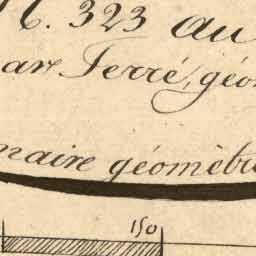 N. 323 au
par Ferré, géo
maire géomètre
150